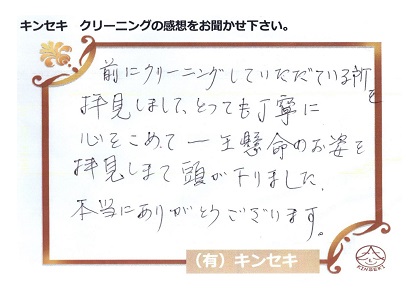 キンセキ　クリーニングの感想をお聞かせ下さい。
前にクリーニングしていただている所を
拝見しまして、とっても丁寧に
心をこめて一生懸命のお姿を
拝見しまて頭が下りました、
本当にありがとうございます。
（有）キンセキ
KINSEKI